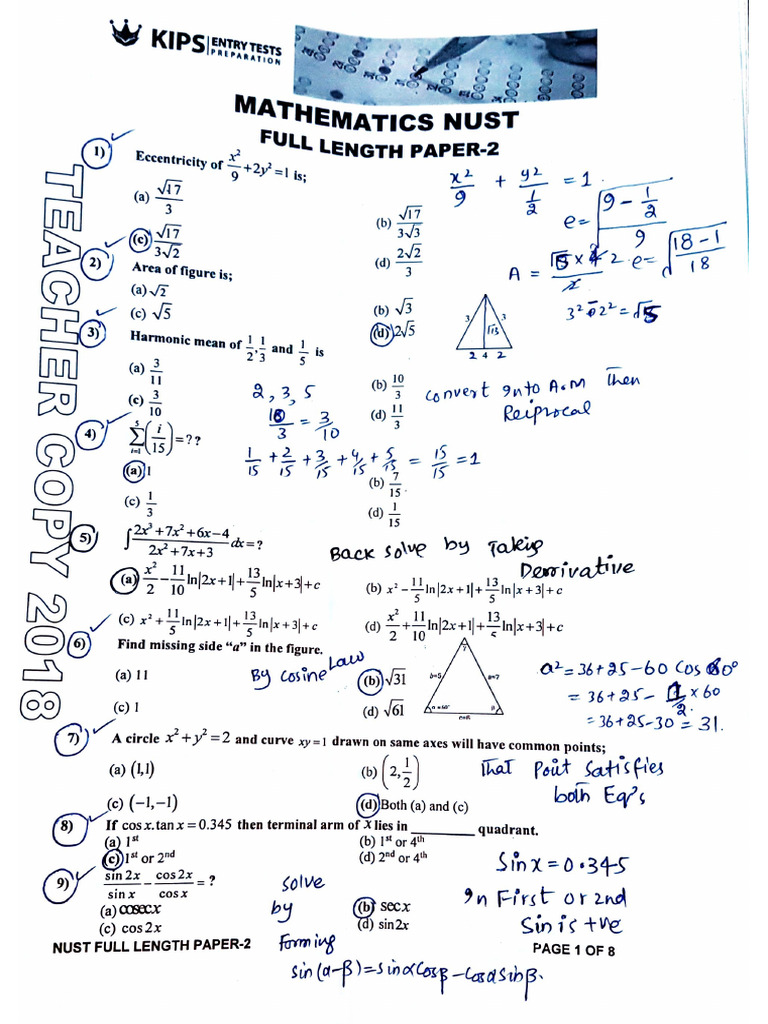 KIPS | ENTRY TESTS PREPARATION
MATHEMATICS NUST
FULL LENGTH PAPER-2
TEACHER COPY 2018
1) Eccentricity of x²/9 + 2y² = 1 is;
(a) √17/3
(b) √17/3√3
(c) √17/3√2
(d) 2√2/3
x²/9 + y²/(1/2) = 1
e = √((9 - 1/2)/9)
e = √((18-1)/18)
2) Area of figure is;
(a) √2
(b) √3
(c) √5
(d) 2√5
3 3 √5
2 4 2
3) Harmonic mean of 1/2, 1/3 and 1/5 is
(a) 3/11
(b) 10/3
(c) 3/10
(d) 11/3
2, 3, 5
10/3 = 3/10
convert into A.M Then
Reciprocal
4) Σ(i=1 to 5) (i/15) = ??
(a) 1
(b) 7/15
(c) 1/3
(d) 1/15
1/15 + 2/15 + 3/15 + 4/15 + 5/15 = 15/15 = 1
5) ∫ (2x³+7x²+6x-4)/(2x²+7x+3) dx = ?
Back solve by Taking
Derrivative
(a) x²/2 - 11/10 ln|2x+1| + 13/5 ln|x+3| + c
(b) x² - 11/5 ln|2x+1| + 13/5 ln|x+3| + c
(c) x² + 11/5 ln|2x+1| + 13/5 ln|x+3| + c
(d) x²/2 + 11/10 ln|2x+1| + 13/5 ln|x+3| + c
6) Find missing side "a" in the figure.
(a) 11
(b) √31
(c) 1
(d) √61
By cosine Law
γ
b=5 a=?
α=60° β
a² = 36+25-60 Cos 60°
= 36+25- 1/2 × 60
= 36+25-30 = 31.
7) A circle x² + y² = 2 and curve xy = 1 drawn on same axes will have common points;
(a) (1,1)
(b) (2, 1/2)
(c) (-1,-1)
(d) Both (a) and (c)
That Point satisfies
both Eq's
8) If cos x.tan x = 0.345 then terminal arm of x lies in ________ quadrant.
(a) 1st
(b) 1st or 4th
(c) 1st or 2nd
(d) 2nd or 4th
Sin x = 0.345
In First or 2nd
Sin is +ve
9) sin 2x/sin x - cos 2x/cos x = ?
(a) cosec x
(b) sec x
(c) cos 2x
(d) sin 2x
solve
by
forming
sin(α-β) = sinαcosβ - cosαsinβ.
NUST FULL LENGTH PAPER-2
PAGE 1 OF 8